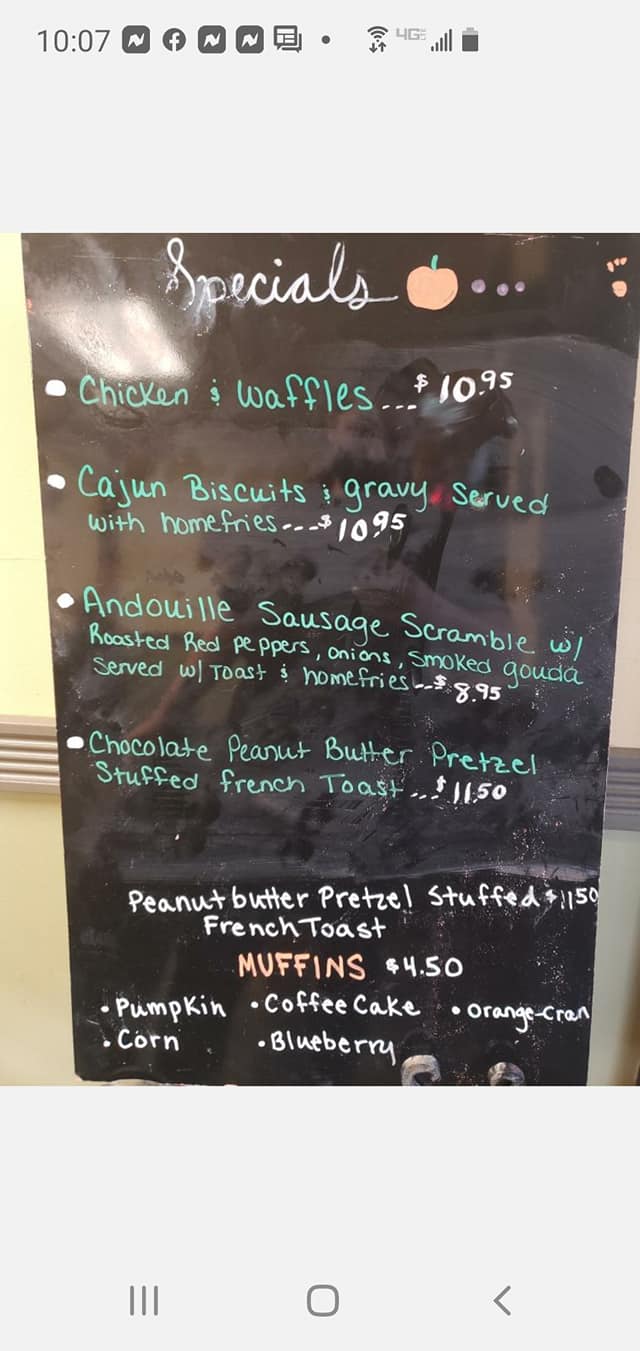 10:07
4G
Specials
Chicken & Waffles...$10.95
Cajun Biscuits & gravy Served
with homefries...$10.95
Andouille Sausage Scramble w/
Roasted Red peppers, onions, Smoked gouda
Served w/ Toast & homefries...$8.95
Chocolate Peanut Butter Pretzel
Stuffed french Toast...$11.50
Peanut butter Pretzel Stuffed $11.50
French Toast
MUFFINS $4.50
• Pumpkin • Coffee Cake • Orange-Cran
• Corn • Blueberry